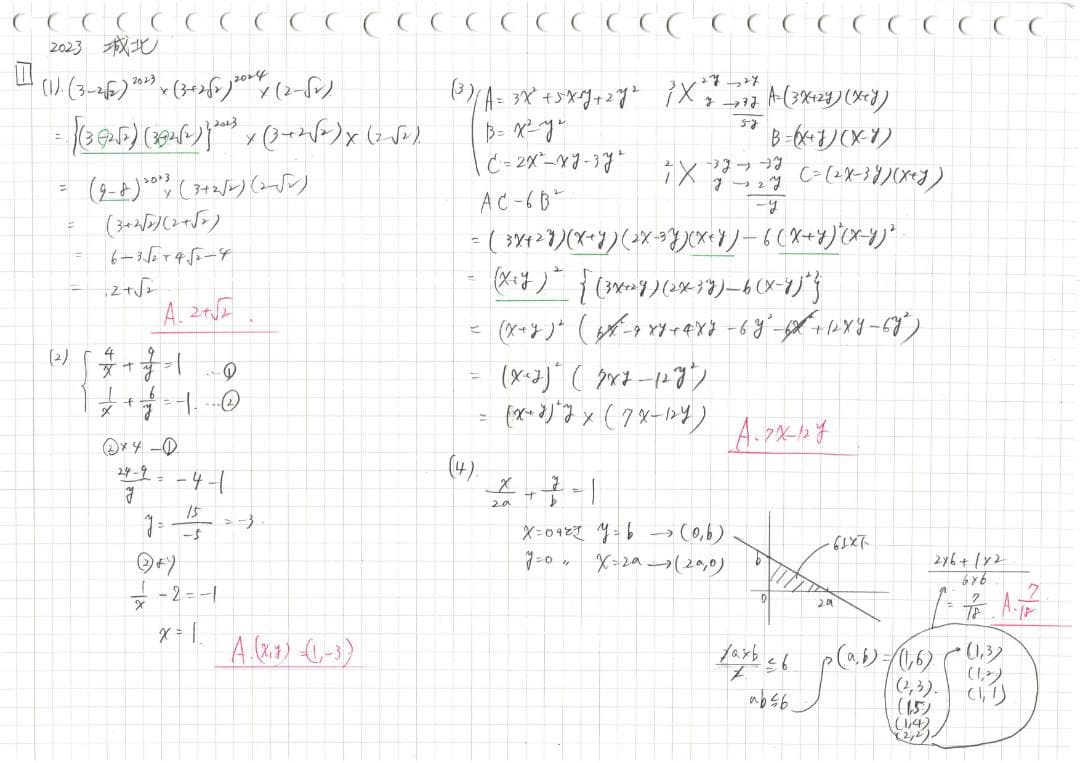 2023 城北
1
(1). (3-2√2)^2023 × (3+2√2)^2024 × (2-√2)
= {(3-2√2)(3+2√2)}^2023 × (3+2√2) × (2-√2).
= (9-8)^2023 × (3+2√2)(2-√2)
= (3+2√2)(2+√2)
= 6-3√2+4√2-4
= 2+√2
A. 2+√2.
(2) { 4/x + 9/y = 1 …①
1/x + 6/y = -1. …②
②×4 -①
24-9/y = -4-1
y = 15/-5 = -3.
②より
1/x - 2 = -1
x = 1.
A. (x,y) = (1,-3)
(3) { A = 3x²+5xy+2y²
B = x²-y²
C = 2x²-xy-3y²
3 1 × 2y → 2y
y → 3y
5y
A=(3x+2y)(x+y)
B=(x+y)(x-y)
2 1 × -3y → -3y
y → 2y
-y
C=(2x-3y)(x+y)
AC-6B²
= (3x+2y)(x+y)(2x-3y)(x+y)-6(x+y)²(x-y)².
= (x+y)² {(3x+2y)(2x-3y)-6(x-y)²}
= (x+y)² (6x²-9xy+4xy-6y²-6x²+12xy-6y²)
= (x+y)² (7xy-12y²)
= (x+y)²y × (7x-12y)
A. 7x-12y
(4).
x/2a + y/b = 1
x=0のとき y=b → (0,b)
y=0 〃 x=2a → (2a,0)
6以下
b
0
2a
2a×b/2 ≦ 6.
ab≦6
(a,b) = (1,6)
(2,3).
(1,5)
(1,4)
(2,2)
(1,3)
(1,2)
(1,1)
2×6+1×2/6×6
= 7/18.
A. 7/18